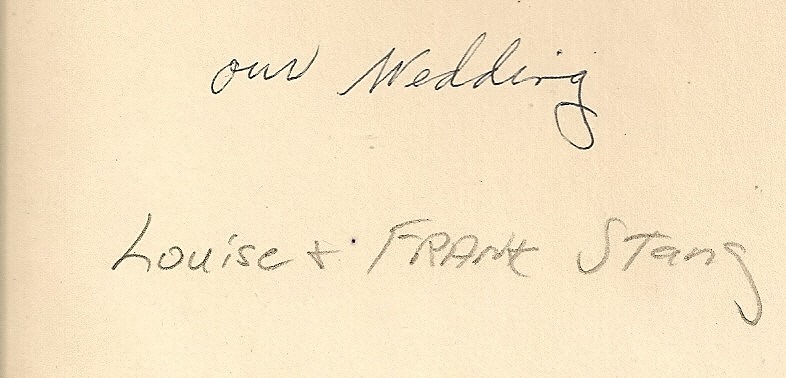 our Wedding
Louise + FRANK Stang